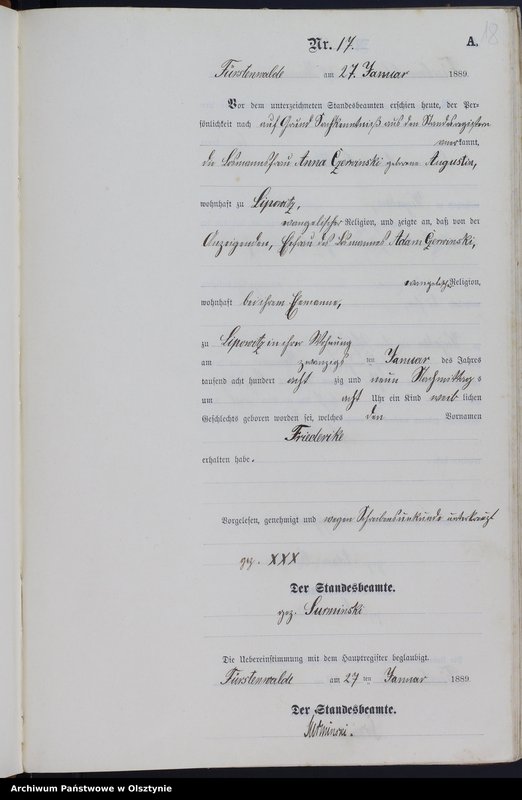 18
Nr. 17. A.
Fürstenwalde am 27. Januar 1889.
Vor dem unterzeichneten Standesbeamten erschien heute, der Per-
sönlichkeit nach auf Grund Sachkenntniß aus den Standesregistern
anerkannt,
die Losmannsfrau Anna Czerwinski geborene Augustin,
wohnhaft zu Lipowitz,
evangelischer Religion, und zeigte an, daß von der
Anzeigenden, Ehefrau des Losmannes Adam Czerwinski,
evangelisch Religion,
wohnhaft bei ihrem Ehemanne,
zu Lipowitz in ihrer Wohnung
am zwanzigs ten Januar des Jahres
tausend acht hundert acht zig und neun Nachmittags
um acht Uhr ein Kind weib lichen
Geschlechts geboren worden sei, welches den Vornamen
Friederike
erhalten habe.
Vorgelesen, genehmigt und wegen Schreibensunkunde unterkreuzt
gez. XXX
Der Standesbeamte.
gez. Surminski
Die Uebereinstimmung mit dem Hauptregister beglaubigt.
Fürstenwalde am 27 ten Januar 1889.
Der Standesbeamte.
Archiwum Państwowe w Olsztynie